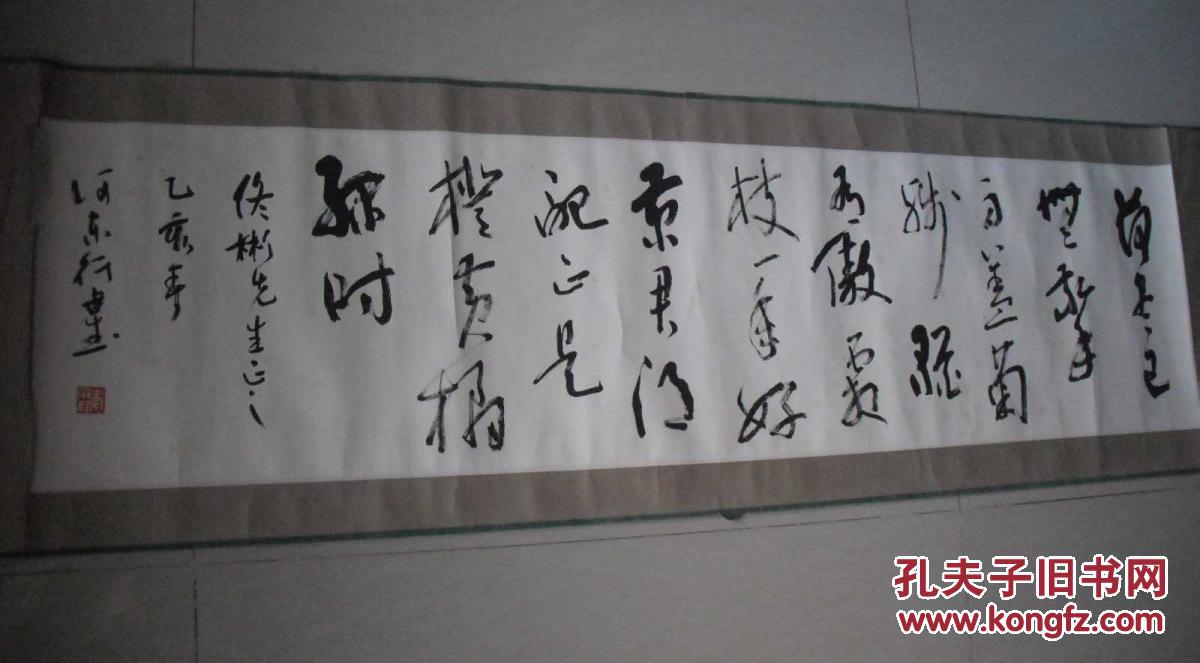 荷尽已
無擎
雨盖菊
残猶
有傲霜
枝一年好
景君须
記正是
橙黄橘
绿时
彬先生正之
乙亥
河东
孔夫子旧书网
www.kongfz.com